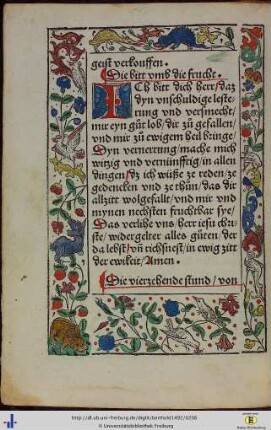 geist verlouffen.
Die bitt vmb die frucht.
ICh bitt dich herr/daz
dyn vnschuldige leste-
rung vnd versmecht/
mir eyn güt lob/dir zü gefallen/
vnd mir zü ewigem heil bringe/
Dyn vernerrung/mache mich
witzig vnd vernünfftig/in allen
dingen/dz ich wüsse ze reden/ze
gedencken vnd ze thün/das dir
allzitt wolgefalle/vnd mir vnd
mynen nechsten fruchtbar sye/
Das verlihe vns herr iesu chri-
ste/widergelter alles güten/der
da lebst/vn̄ richsnest/in ewig zitt
der ewikeit/Amen.
Die vierzehende stund/von
http://dl.ub.uni-freiburg.de/diglit/
© Universitätsbibliothek Freiburg